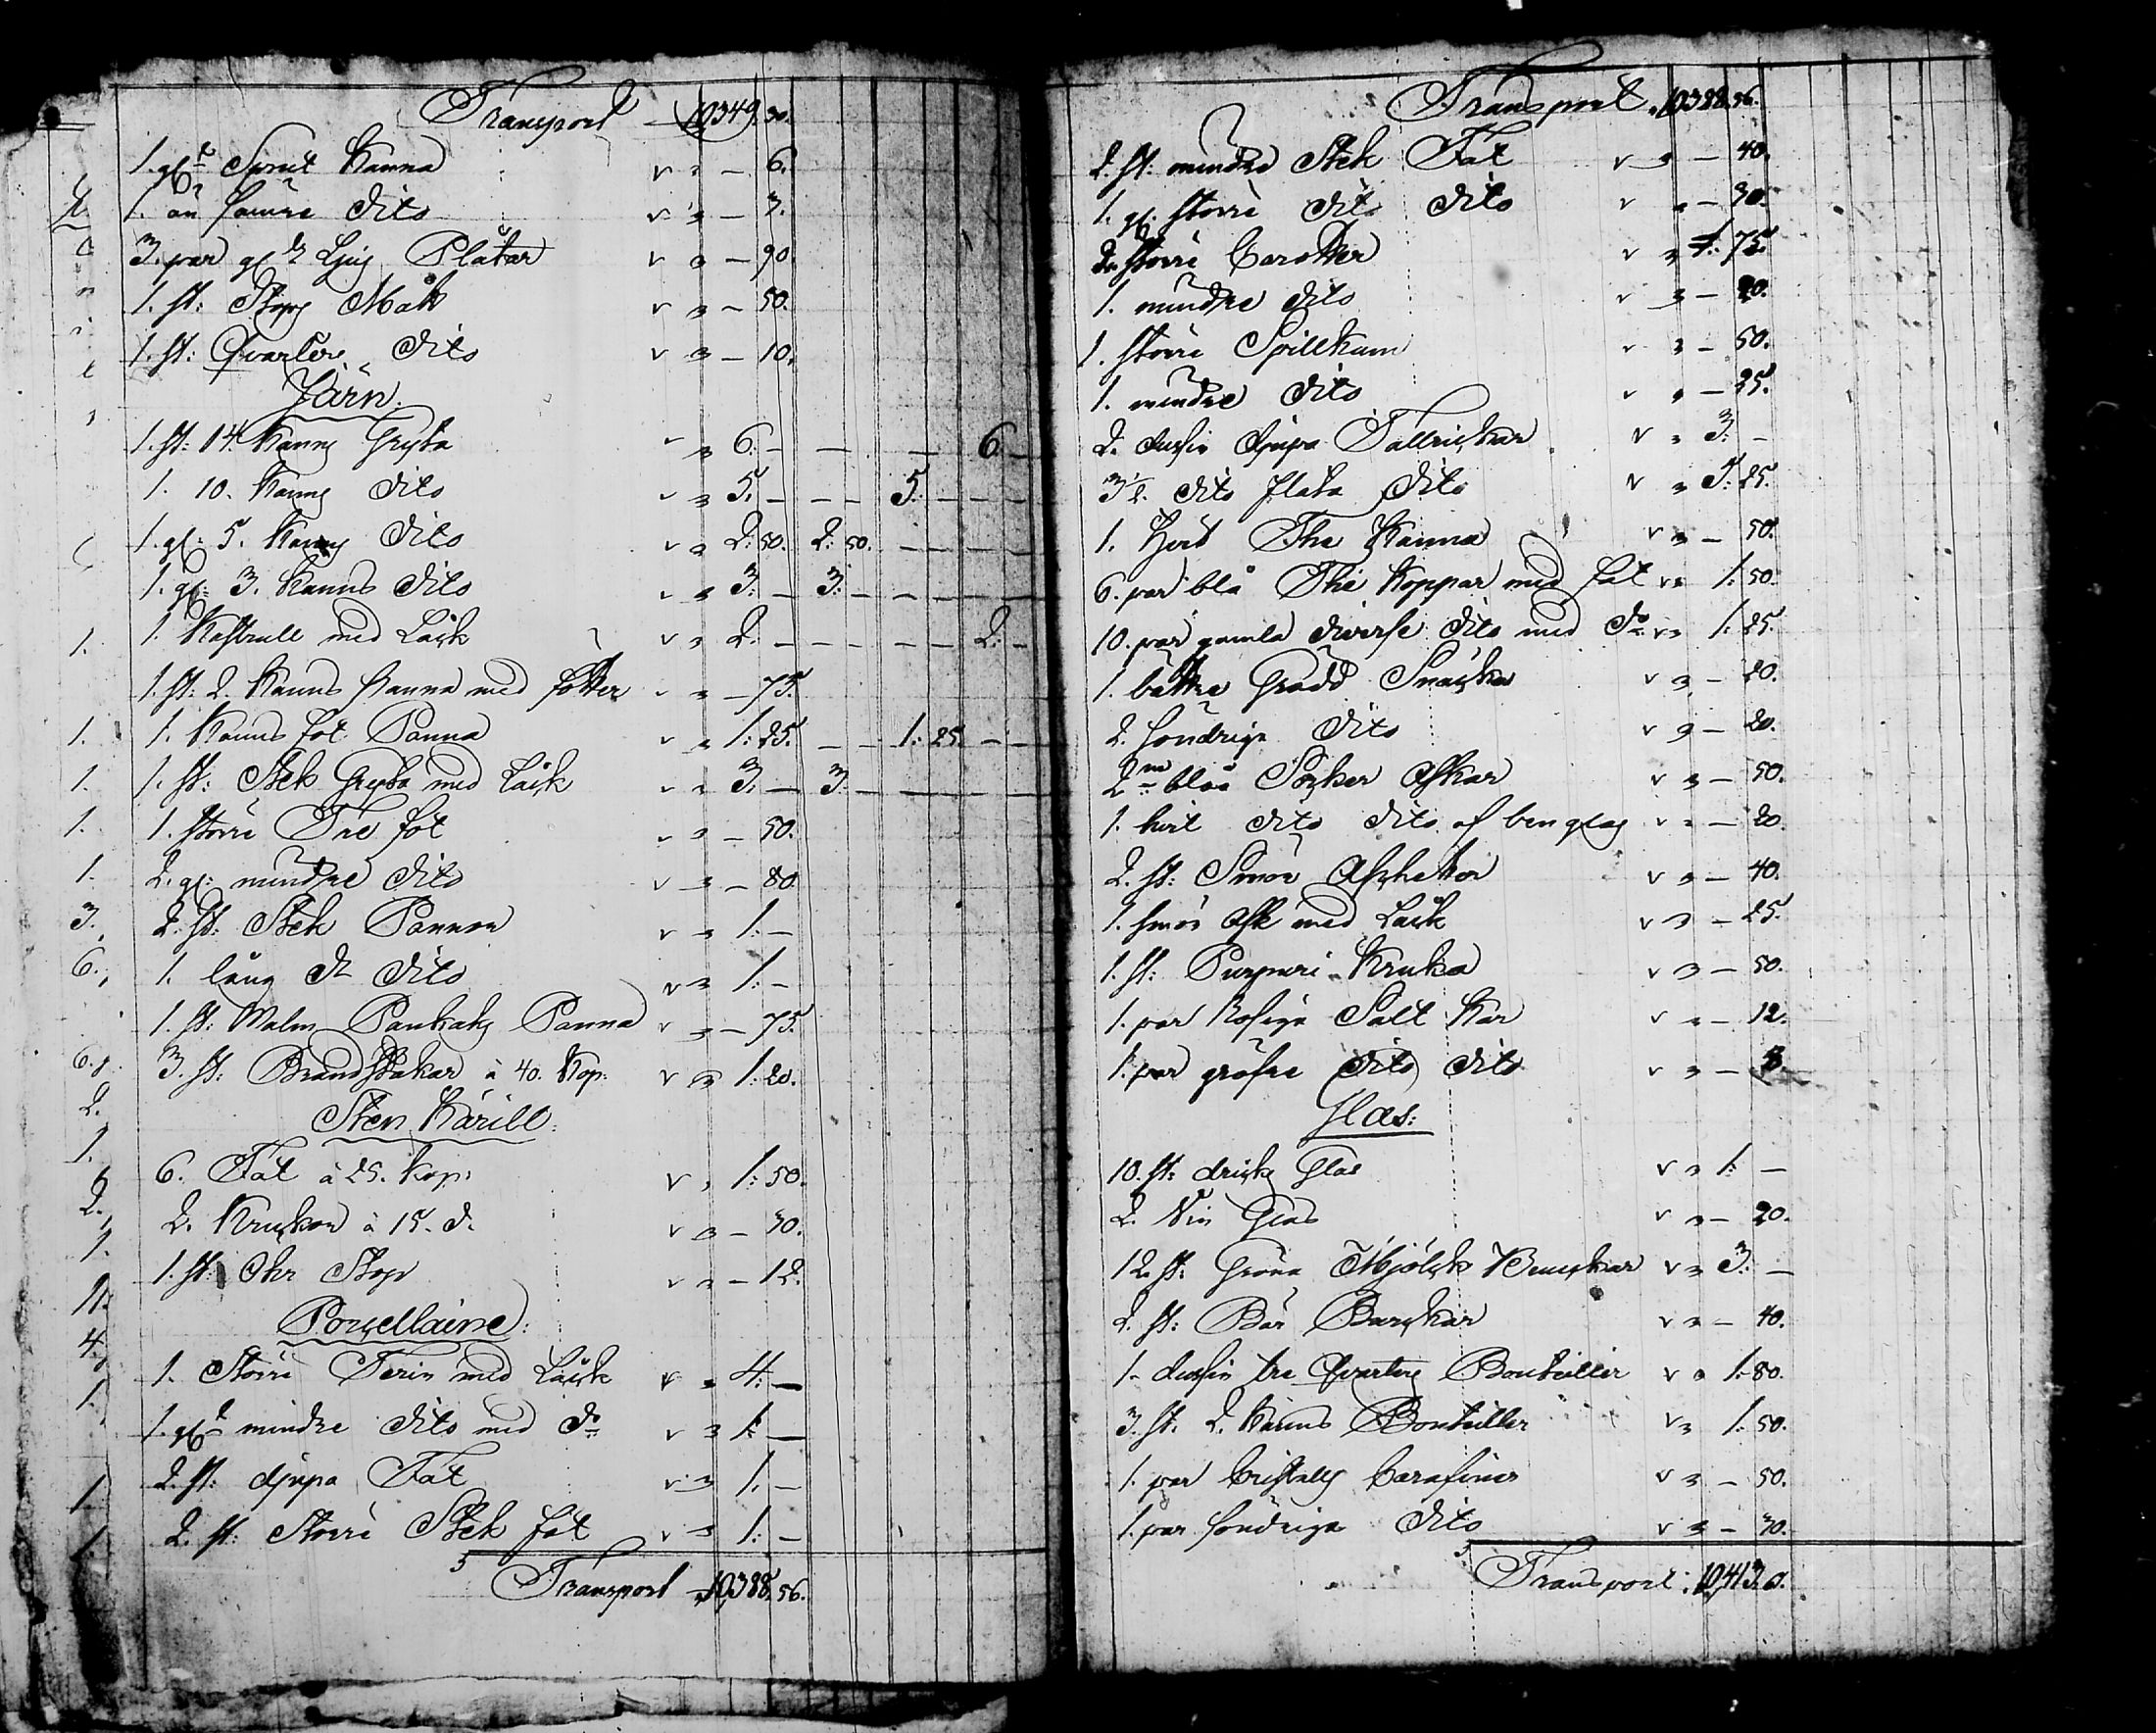 Transport 10349. 30.
1. gl. Kanna v " — 6.
1. än sämre dito v " — 3.
3. par gl. Ljus Plåtar v " — 90
1. st: Stops Mått v " — 50.
1. st: Qvarters dito v " — 10.
Järn.
1. st: 14. Kanns Gryta v " 6. — — — 6 —
1. 10. Kanns dito v " 5. — — — 5. — — —
1. gl: 5. Kanns dito v " 2: 50. 2: 50. — — — —
1. gl: 3. Kanns dito v " 3: — 3: — — — — —
1. 1. Kastrull med Låck v " 2. — — — — — 2. —
1. st: 2. Kanns Panna med fötter v " — 75.
1. 1. Kanns fot Panna v " 1: 25. — — 1: 25 — —
1. 1. st: Stek Gryta med Låck v " 3. — 3. — — — — —
1. 1. större Tre fot v " — 50.
1. 2. gl: mindre dito v " — 80.
3. 2. st: Stek Pannor v " 1: —
6. 1. lång do dito v " 1: —
1. st: Malm Pankaks Panna v " — 75.
6. 3. st: Brandstakar à 40. Kop: v " 1: 20.
2.
Sten Kärill:
1.
6. Fat à 25. Kop: v " 1: 50.
2. 2. Kruckor à 15. d. v " — 30.
1. 1. st: Stop v " — 12.
11.
Porcellaine:
4. 1. Större Terin med Låck v " 4: —
1. 1. gl mindre dito med do v " 1: —
1. 2. st: djupa Fat v " 1. —
1. 2. st: Större Stek fat v " 1: —
Transport 10,388, 56.
Transport 10388. 56.
2. st: mindre Stek Fat v " — 40.
1. gl. större dito dito v " — 30.
2. större Carotter v " 75.
1. mindre dito v " — 20.
1. större Spillkum v " — 50.
1. mindre dito v " — 25.
2. dussin djupa Tallrickar v " 3: —
3 1/2. dito flata dito v " 5: 25.
1. Hvit The Kanna v " — 50.
6. par blå The Koppar med fat v " 1: 50.
10. par gamla diverse dito med do v " 1: 25.
1. bättre Grädd Snäcka v " — 20.
2. söndriga dito v " — 20.
2ne blåa Såcker Askar v " — 50.
1. hvit dito dito af ben glas v " — 20.
2. st: Smör v " — 40.
1. smör Ask med Låck v " — 25.
1. st: Kruka v " — 50.
1. par Rosiga Salt Kar v " — 12.
1. par gröfre dito dito v " — 8.
Glas:
10. st: dricks Glas v " 1: —
2. Vin Glas v " — 20.
12. st: Gröna Mjölck Bunckar v " 3: —
2. st: Bär Bunckar v " — 40.
1. dussin tre Qvarters Bouteiller v " 1. 80.
3. st. 2. Kanns Bouteiller v " 1. 50.
1. par Cristalls Carafiner v " — 50.
1. par söndriga dito v " — 30.
Transport: 10,413. 6.